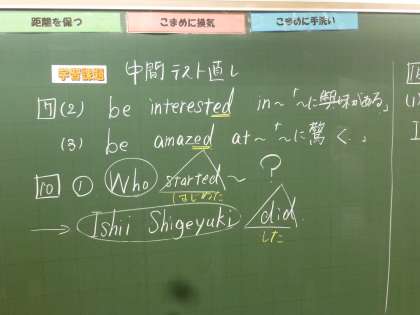 距離を保つ
こまめに換気
こまめに手洗い
学習課題 中間テスト直し
7 (2) be interested in～「～に興味がある」
(3) be amazed at～「～に驚く」
10 ① Who started ～ ?
はじめた
→ Ishii Shigeyuki did.
した
(1)